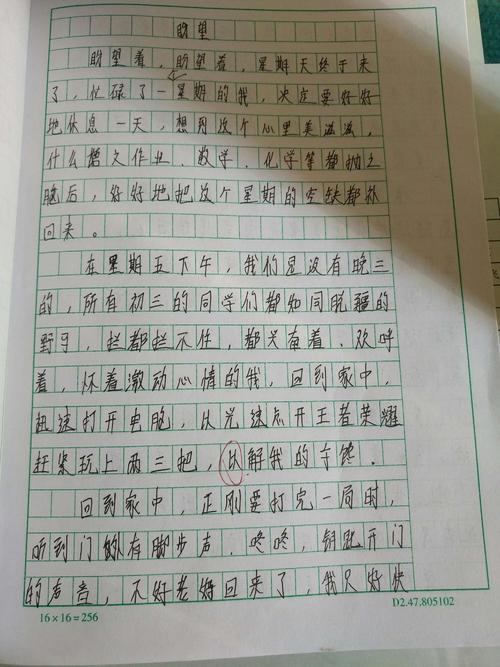 盼望
盼望着，盼望着，星期天终于来
了，忙碌了一星期的我，决定要好好
地休息一天，想到这个心里美滋滋，
什么语文作业、数学、化学等都抛之
脑后，好好地把这个星期的空缺都补
回来。
在星期五下午，我们是没有晚三
的，所有初三的同学们都如同脱疆的
野马，拦都拦不住，都兴奋着、欢呼
着，怀着激动心情的我，回到家中，
迅速打开电脑，以光速点开王者荣耀
赶紧玩上两三把，以解我的手馋。
回到家中，正刚要打完一局时，
听到门外有脚步声，咚咚，钥匙开门
的声音，不好老妈回来了，我只好快
16×16=256
D2.47.805102